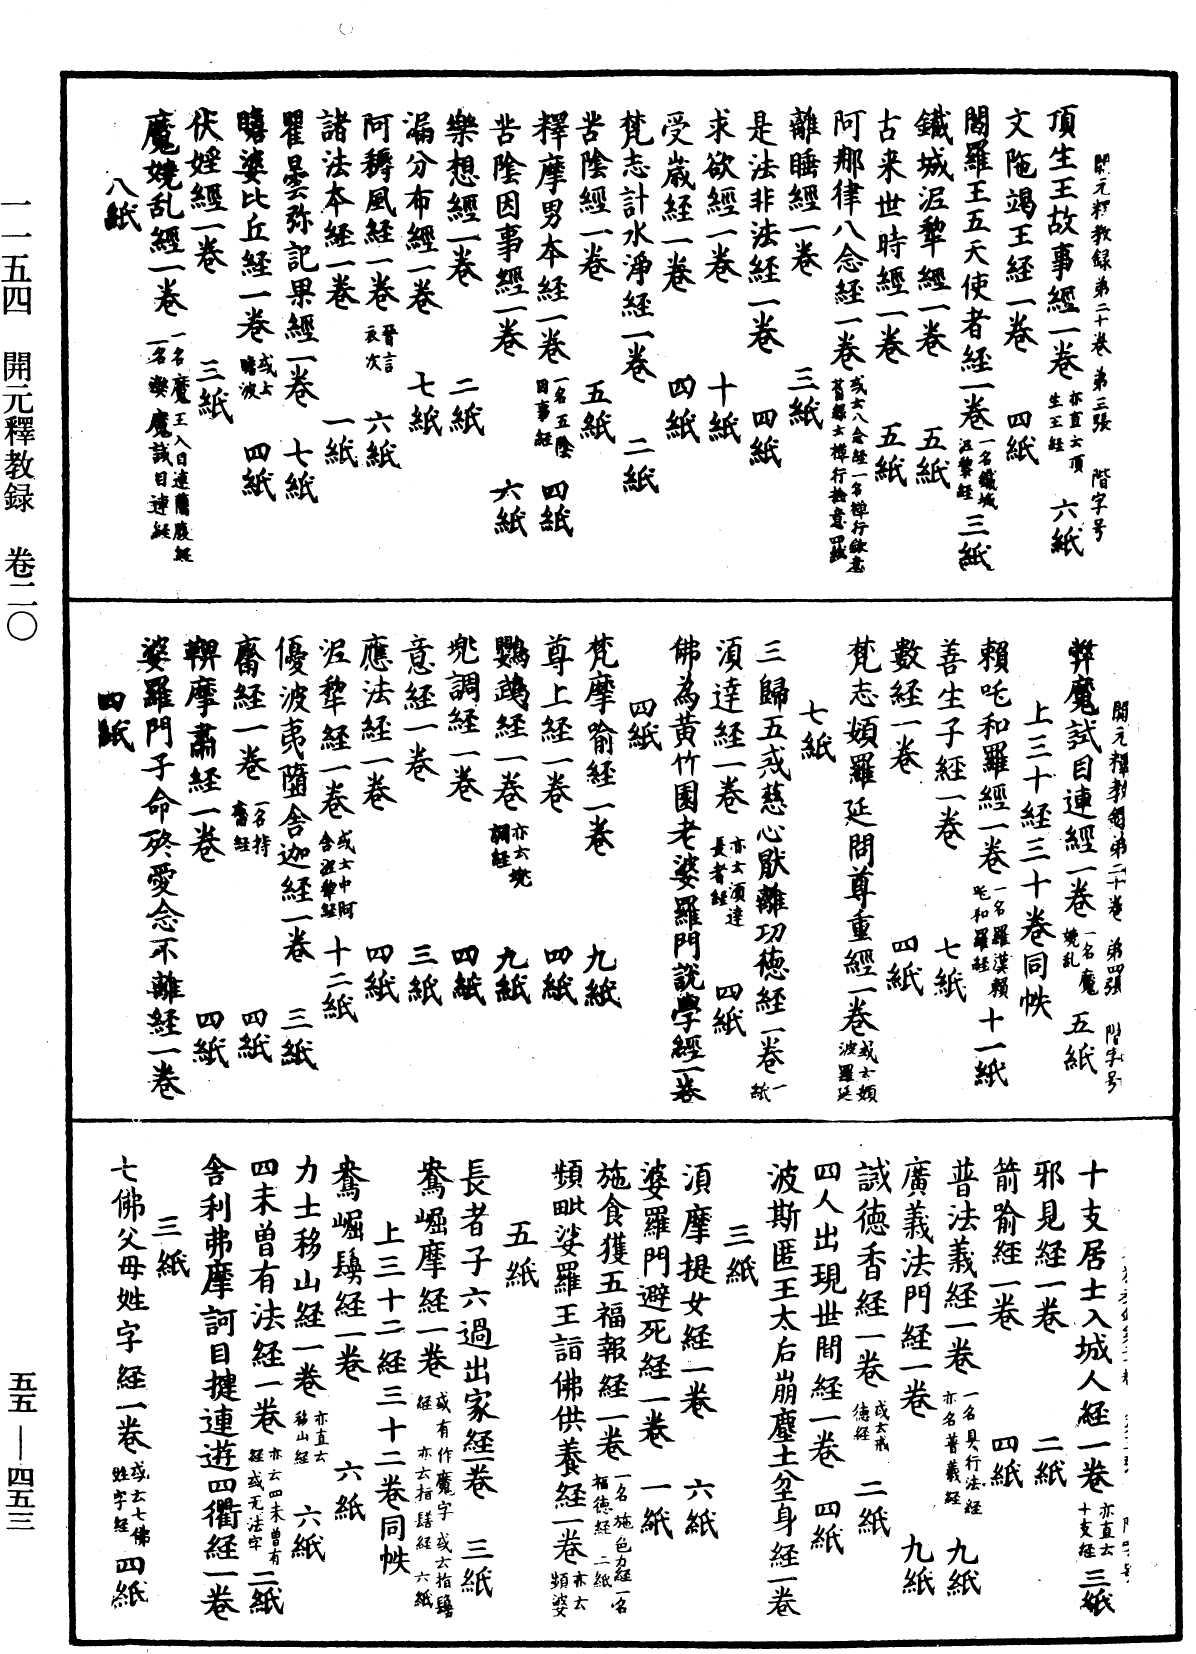 一一五四　開元釋教録　卷二〇
五五—四五三
開元釋教録第二十卷　第三張　階字号
頂生王故事經一卷 亦直云頂生王經 六紙
文陁竭王經一卷 四紙
閻羅王五天使者經一卷 一名鐵城泥犂經 三紙
鐵城泥犂經一卷 五紙
古来世時經一卷 五紙
阿那律八念經一卷 或云八念經一名禪行斂意舊録云禪行撿意 四紙
離睡經一卷 三紙
是法非法經一卷 四紙
求欲經一卷 十紙
受歲經一卷 四紙
梵志計水淨經一卷 二紙
苦陰經一卷 五紙
釋摩男本經一卷 一名五陰因事經 四紙
苦陰因事經一卷 六紙
樂想經一卷 二紙
漏分布經一卷 七紙
阿耨風經一卷 晉言依次 六紙
諸法本經一卷 一紙
瞿曇弥記果經一卷 七紙
瞻婆比丘經一卷 或云瞻波 四紙
伏婬經一卷 三紙
魔嬈乱經一卷 一名魔王入目連蘭腹經一名弊魔試目連經
八紙
開元釋教録第二十卷　第四張　階字号
弊魔試目連經一卷 一名魔嬈乱 五紙
上三十經三十卷同帙
賴吒和羅經一卷 一名羅漢賴吒和羅經 十一紙
善生子經一卷 七紙
數經一卷 四紙
梵志頞羅延問尊重經一卷 或云頞波羅延
七紙
三歸五戒慈心猒離功德經一卷 一紙
須達經一卷 亦云須達長者經 四紙
佛為黃竹園老婆羅門說學經一卷
四紙
梵摩喻經一卷 九紙
尊上經一卷 四紙
鸚鵡經一卷 亦云兜調經 九紙
兜調經一卷 四紙
意經一卷 三紙
應法經一卷 四紙
泥犂經一卷 或云中阿含泥犂經 十二紙
優波夷隨舍迦經一卷 三紙
齋經一卷 一名持齋經 四紙
鞞摩肅經一卷 四紙
婆羅門子命終愛念不離經一卷
四紙
十支居士八城人經一卷 亦直云十支經 三紙
邪見經一卷 二紙
箭喻經一卷 四紙
普法義經一卷 一名具行法經亦名普義經 九紙
廣義法門經一卷 九紙
誡德香經一卷 或云戒德經 二紙
四人出現世間經一卷 四紙
波斯匿王太后崩塵土坌身經一卷
三紙
須摩提女經一卷 六紙
婆羅門避死經一卷 一紙
施食獲五福報經一卷 一名施色力經一名福德經 二紙
頻毗娑羅王詣佛供養經一卷 亦云頻婆
五紙
長者子六過出家經一卷 三紙
鴦崛摩經一卷 或有作魔字或云指鬘經亦云指髻經 六紙
上三十二經三十二卷同帙
鴦崛髻經一卷 六紙
力士移山經一卷 亦直云移山經 六紙
四未曾有法經一卷 亦云四未曾有經或无法字 二紙
舍利弗摩訶目揵連遊四衢經一卷
三紙
七佛父母姓字經一卷 或云七佛姓字經 四紙